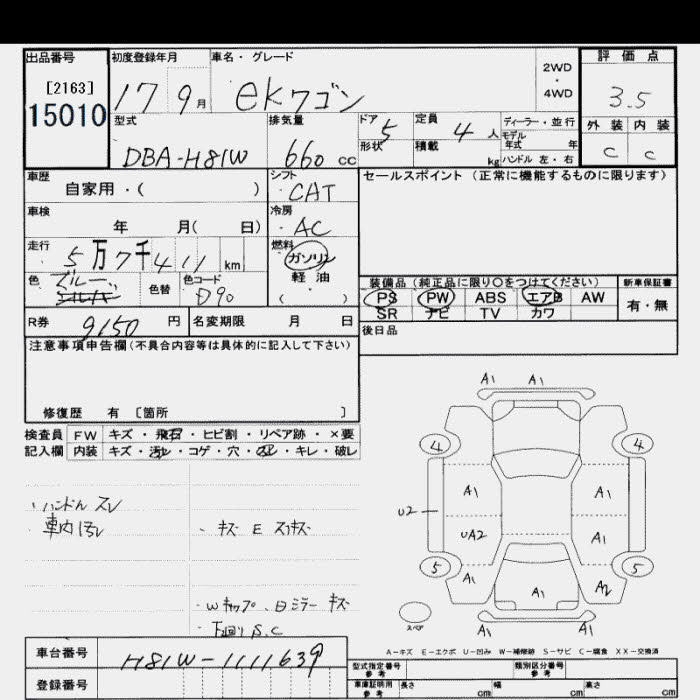 出品番号 初度登録年月 車名・グレード 2WD・4WD 評価点
[2163]
15010 17 9月 ekワゴン 3.5
型式 排気量 ドア 5 定員 4人 ディーラー・並行 外装 内装
DBA-H81W 660 cc 形状 積載 kg モデル年式 年 ハンドル 左・右 C C
車歴 シフト セールスポイント (正常に機能するものに限ります)
自家用・( ) CAT
車検 冷房
年 月( 日) AC
走行 5万7千411km 燃料 ガソリン
色 ブルー シルバー 色替 色コード D90 軽油
( ) 装備品 (純正品に限り○をつけてください) 新車保証書
PS PW ABS エアB AW 有・無
SR ナビ TV カワ
R券 9150円 名変期限 月 日 後日品
注意事項申告欄(不具合内容等は具体的に記入して下さい)
修復歴 有 [箇所 ]
検査員 FW キズ・飛石・ヒビ割・リペア跡・×要
記入欄 内装 キズ・汚レ・コゲ・穴・スレ・キレ・破レ
・ハンドル スレ
・車内汚レ ・キズ E スリキズ
・Wキャップ、日ミラー キズ
・下廻り S.C
A1 A1
4 4
A1 A1
U2 UA2 A1
5 5
A1 A1 A2
スペア A1 A1
A-キズ E-エクボ U-凹み W-補修跡 S-サビ C-腐食 XX-交換済
車台番号 H81W-1111639
登録番号
型式指定番号 参考 類別区分番号 参考
車庫証明用 参考 長さ cm 幅 cm 高さ cm